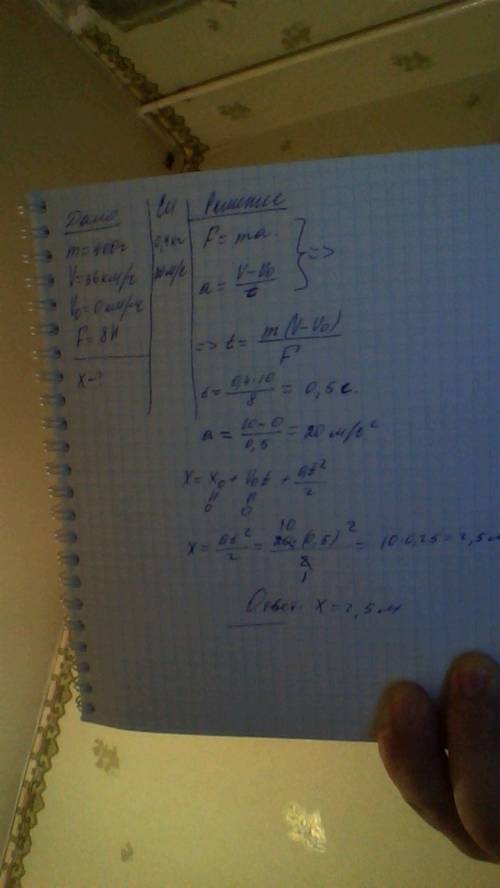 Дано
m = 400г
V = 36 км/ч
V₀ = 0 км/ч
F = 8 Н
x - ?
СИ
0,4 кг
10 м/с
Решение
F = ma.
a = (V - V₀)/t
} =>
=> t = m(V - V₀)/F
t = 0,4·10/8 = 0,5 с.
a = (10 - 0)/0,5 = 20 м/с²
x = x₀ + V₀t + at²/2
0 0
x = at²/2 = 20·(0,5)²/2 = 10·0,25 = 2,5 м
10
1
Ответ. x = 2,5 м